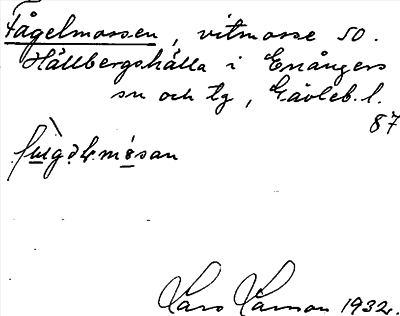 Fågelmossen, vitmosse SO.
Hållbergshälla i Enångers
sn och tg, Gävleb. l.
87
Lars Larson 1932.